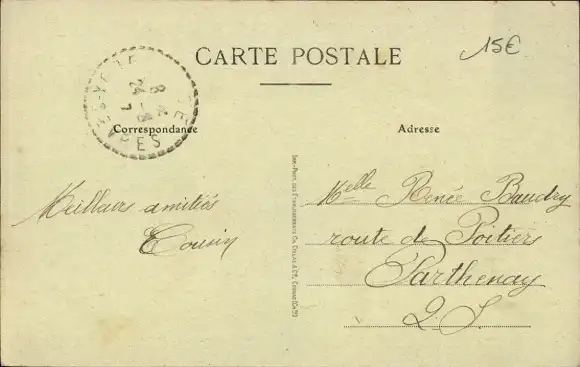 CARTE POSTALE
15€
Correspondance
Adresse
Meilleurs amitiés
Cousin
Melle Renée Baudry
route de Poitiers
Parthenay
2. S.